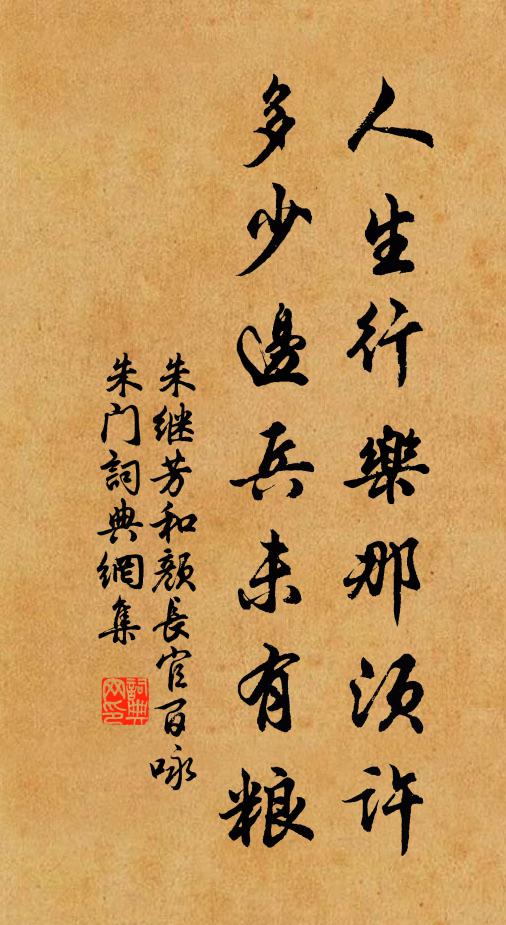 人生行樂那須許
多少邊兵未有粮
朱继芳和颜長官百咏
朱门詞典網集
詞典网印